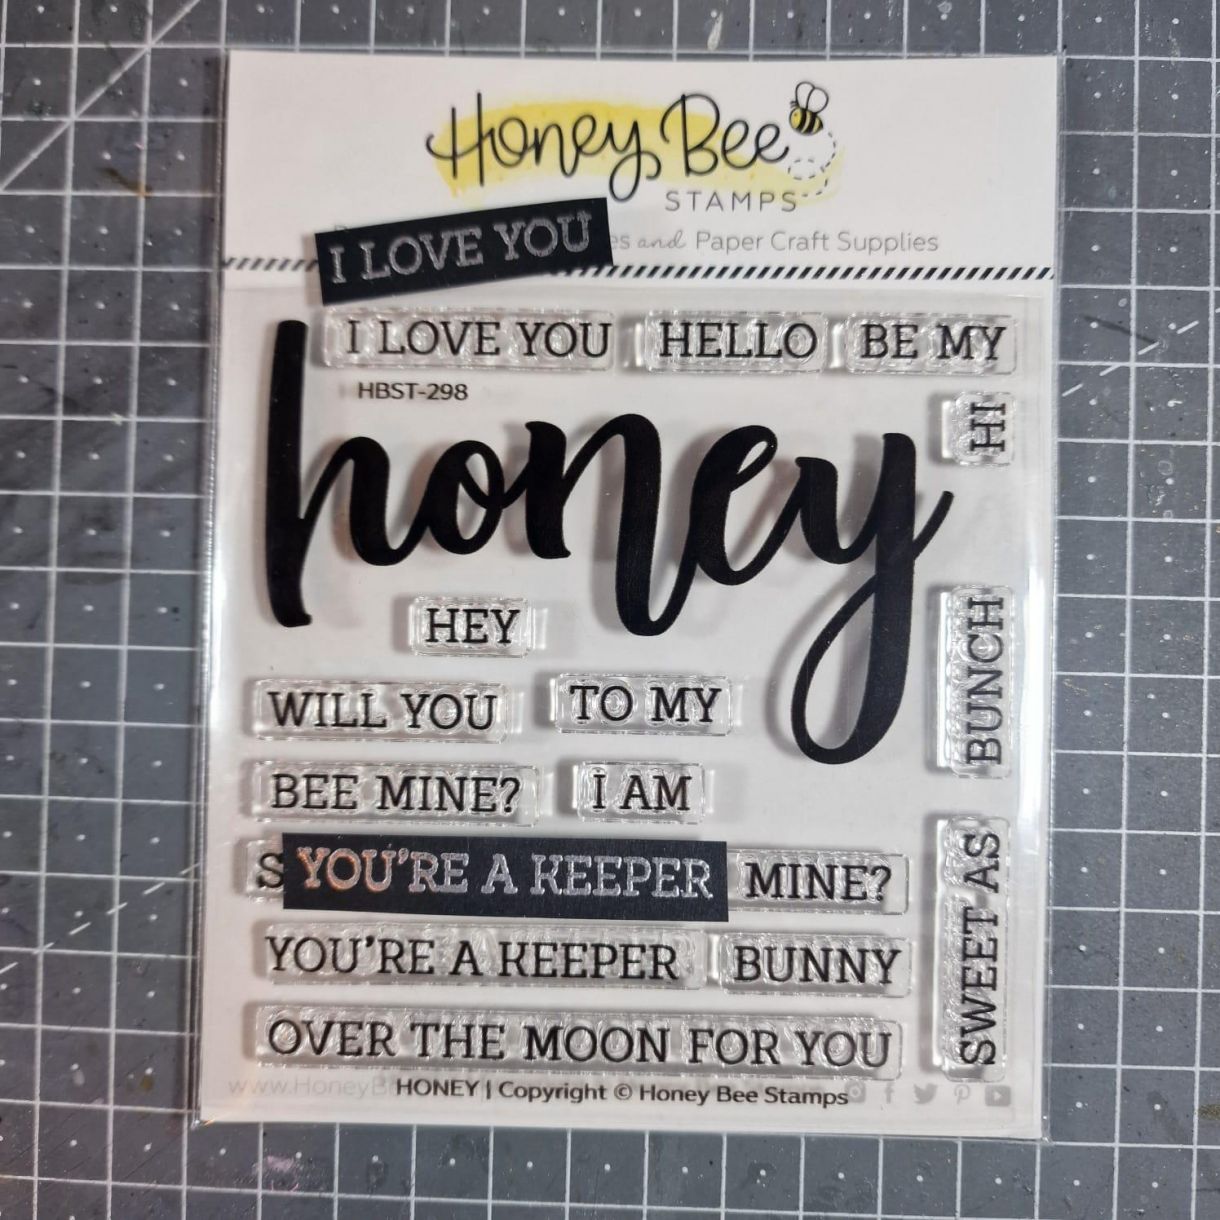 Honey Bee
STAMPS
I LOVE YOU
and Paper Craft Supplies
I LOVE YOU HELLO BE MY
HBST-298
HI
honey
HEY
BUNCH
WILL YOU TO MY
BEE MINE? I AM
YOU'RE A KEEPER MINE?
SWEET AS
YOU'RE A KEEPER BUNNY
OVER THE MOON FOR YOU
HONEY | Copyright © Honey Bee Stamps